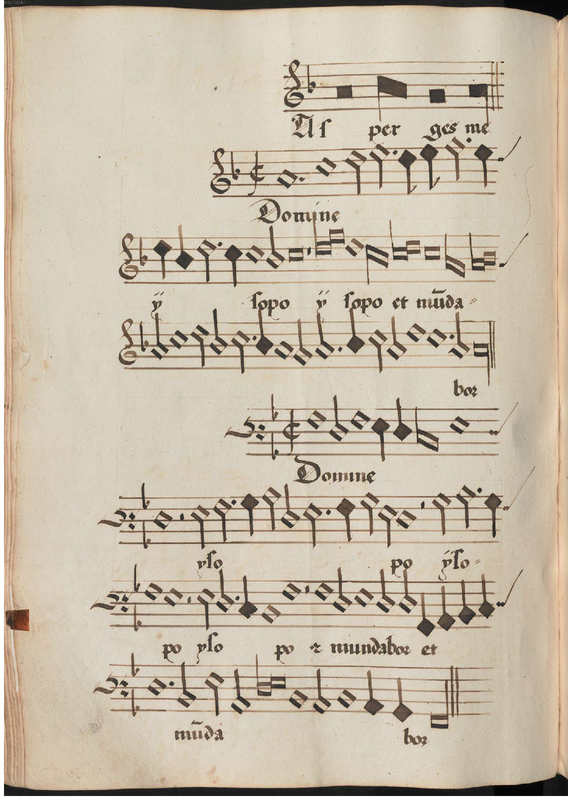 As per ges me
Domine
ÿ sopo ÿ sopo et mūda⸗
bor
Domine
yso po ÿso⸗
po yso po ⁊ mundabor et
mūda bor